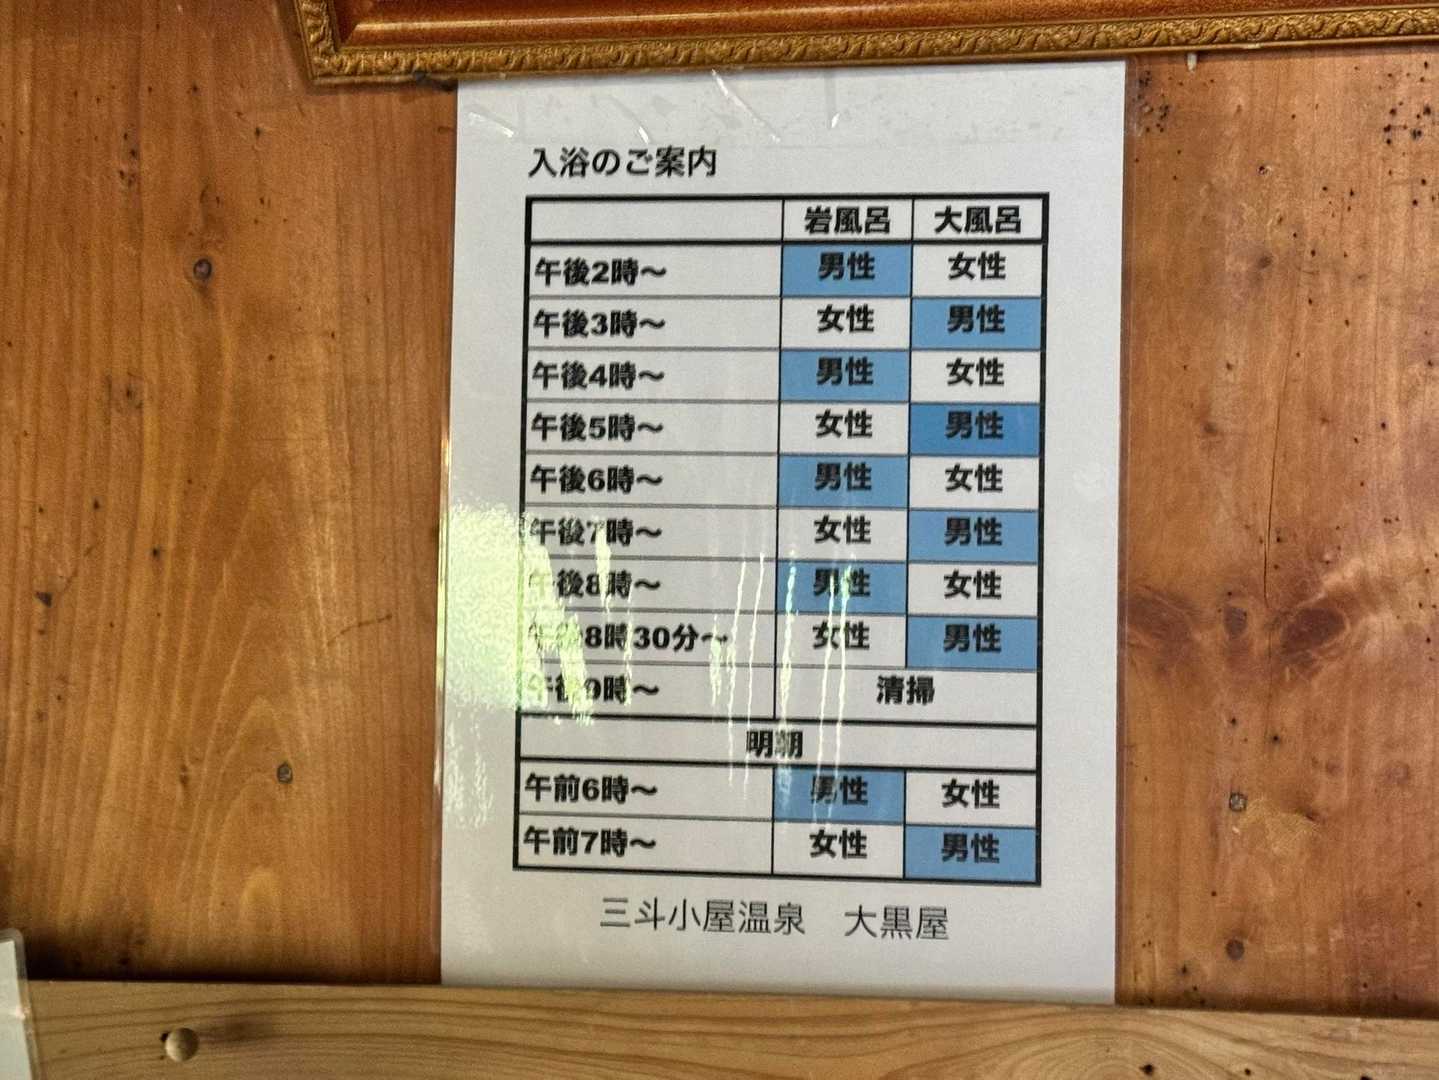 入浴のご案内
岩風呂 大風呂
午後2時～ 男性 女性
午後3時～ 女性 男性
午後4時～ 男性 女性
午後5時～ 女性 男性
午後6時～ 男性 女性
午後7時～ 女性 男性
午後8時～ 男性 女性
午後8時30分～ 女性 男性
午後9時～ 清掃
明朝
午前6時～ 男性 女性
午前7時～ 女性 男性
三斗小屋温泉 大黒屋